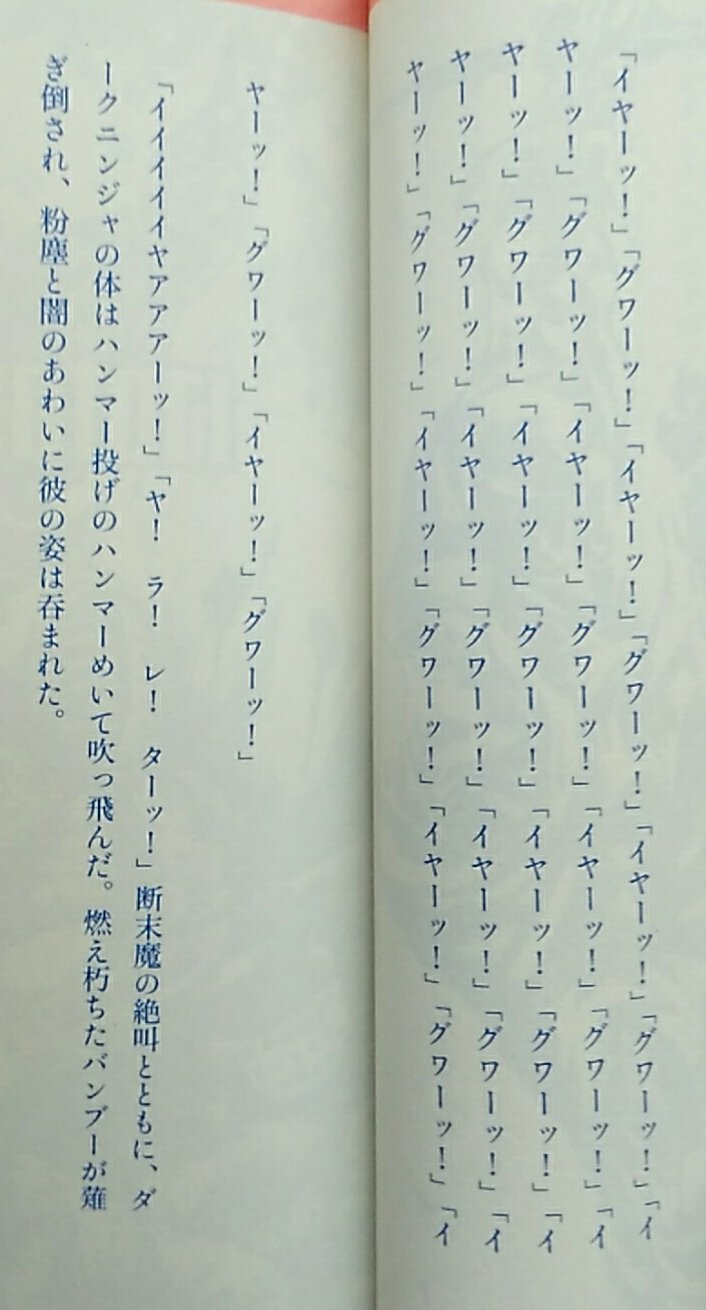 「イヤーッ！」「グワーッ！」「イヤーッ！」「グワーッ！」「イヤーッ！」「グワーッ！」「イ
ヤーッ！」「グワーッ！」「イヤーッ！」「グワーッ！」「イヤーッ！」「グワーッ！」「イ
ヤーッ！」「グワーッ！」「イヤーッ！」「グワーッ！」「イヤーッ！」「グワーッ！」「イ
ヤーッ！」「グワーッ！」「イヤーッ！」「グワーッ！」「イヤーッ！」「グワーッ！」「イ
ヤーッ！」「グワーッ！」「イヤーッ！」「グワーッ！」「イヤーッ！」「グワーッ！」「イ
ヤーッ！」「グワーッ！」「イヤーッ！」「グワーッ！」
「イイイイイヤアアアーッ！」「ヤ！　ラ！　レ！　ターッ！」断末魔の絶叫とともに、ダ
ークニンジャの体はハンマー投げのハンマーめいて吹っ飛んだ。燃え朽ちたバンブーが薙
ぎ倒され、粉塵と闇のあわいに彼の姿は呑まれた。